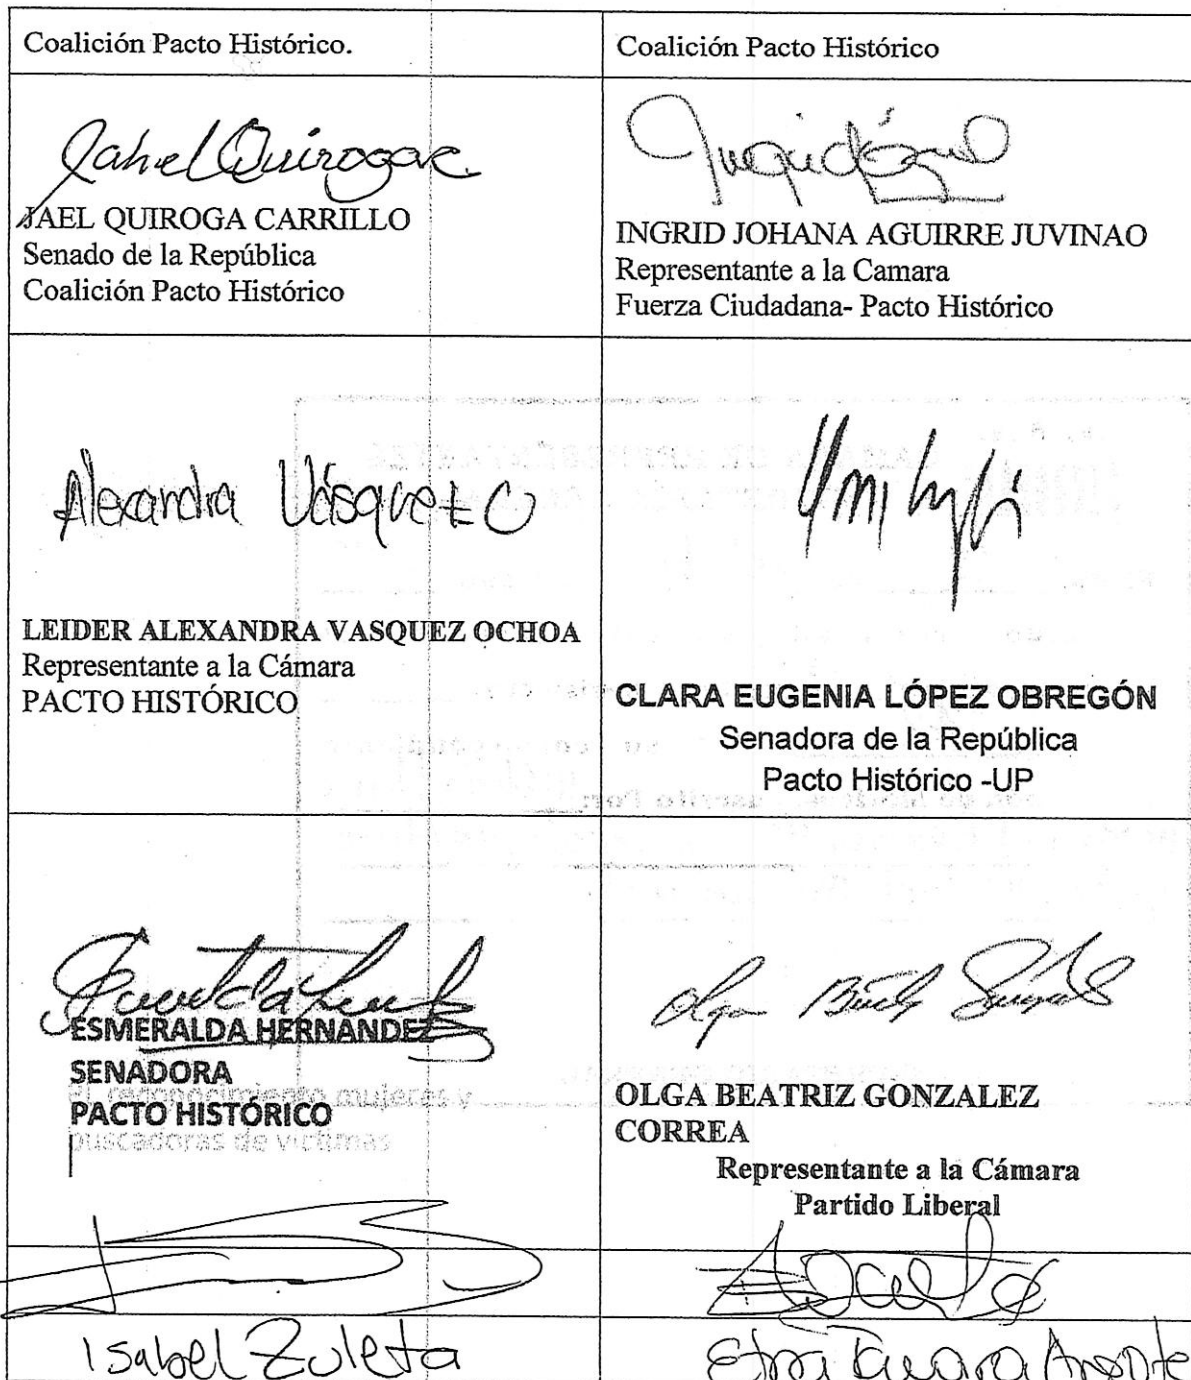 Coalición Pacto Histórico.
Coalición Pacto Histórico
Jahel Quiroga C.
JAEL QUIROGA CARRILLO
Senado de la República
Coalición Pacto Histórico
INGRID JOHANA AGUIRRE JUVINAO
Representante a la Camara
Fuerza Ciudadana- Pacto Histórico
Alexandra Vásquez O
LEIDER ALEXANDRA VASQUEZ OCHOA
Representante a la Cámara
PACTO HISTÓRICO
CLARA EUGENIA LÓPEZ OBREGÓN
Senadora de la República
Pacto Histórico -UP
ESMERALDA HERNANDEZ
SENADORA
el reconocimiento mujeres y
PACTO HISTÓRICO
buscadoras de victimas
Olga Beatriz González
OLGA BEATRIZ GONZALEZ
CORREA
Representante a la Cámara
Partido Liberal
Isabel Zuleta
Tamara